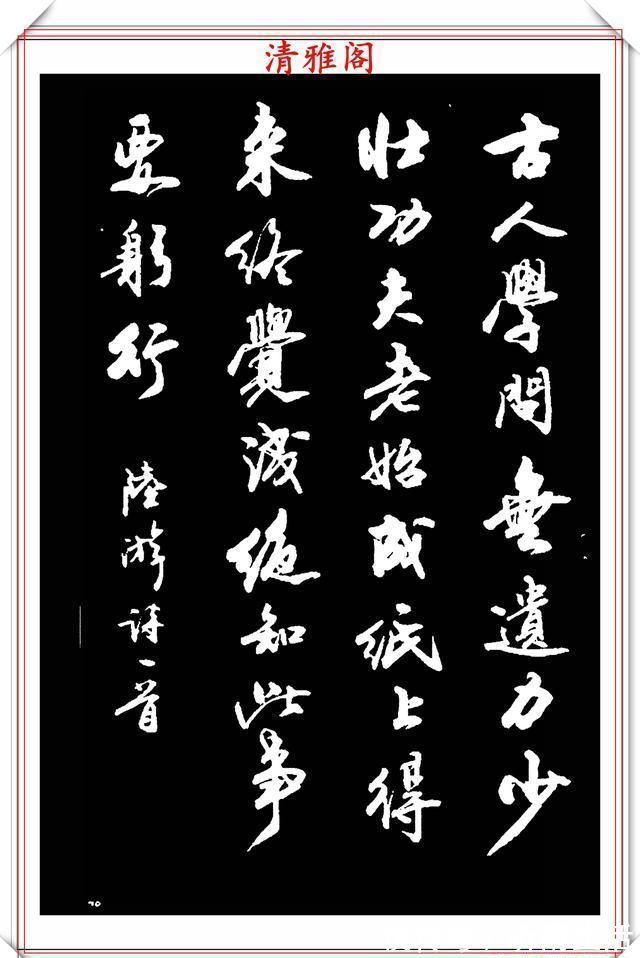 清雅阁
古人學問無遺力少
壮功夫老始成纸上得
来终覺浅绝知此事
要躬行
陸游诗一首
70